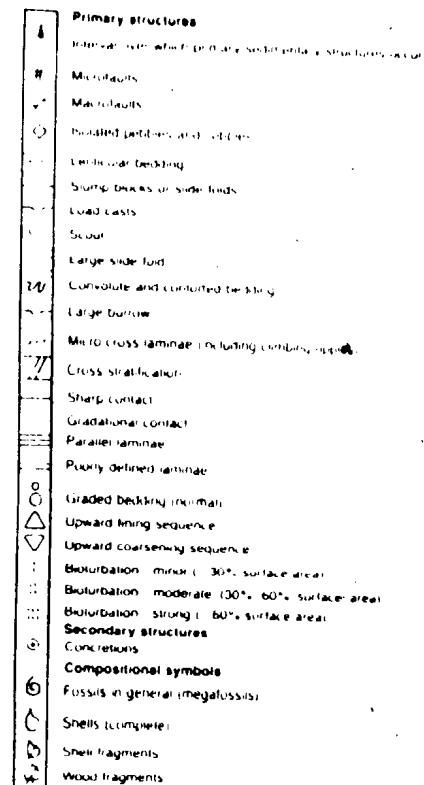 Primary structures
Interval over which primary sedimentary structures occur
Microfaults
Macrofaults
Isolated pebbles and cobbles
Lenticular bedding
Slump blocks or slide folds
Load casts
Scour
Large slide fold
Convolute and contorted bedding
Large burrow
Micro cross laminae (including climbing ripples)
Cross stratification
Sharp contact
Gradational contact
Parallel laminae
Poorly defined laminae
Graded bedding (normal)
Upward fining sequence
Upward coarsening sequence
Bioturbation minor ( 30% surface area)
Bioturbation moderate (30% 60% surface area)
Bioturbation strong ( 60% surface area)
Secondary structures
Concretions
Compositional symbols
Fossils in general (megafossils)
Shells (complete)
Shell fragments
Wood fragments